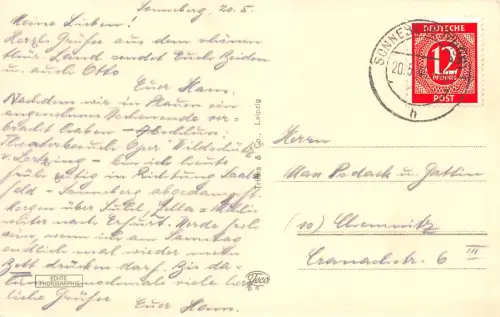 Sonneberg, 20.5.
Meine Lieben!
Herzl. Grüße aus dem schönen
Thür. Land sendet Euch Beiden
u. auch Otto
Euer Hann.
Nachdem wir in Plauen ein
angenehmes Wochenende ver-
bracht haben -
Theaterbesuch Oper Wildschütz
v. Lortzing - bin ich heute
früh zeitig in Richtung Saal-
feld - Sonneberg abgedampft.
Morgen über Suhl, Zella-Mehlis
weiter nach Erfurt. Werde froh
sein, wenn ich am Samstag
endlich mal wieder mein
Bett drücken darf. Bis da-
hin nochmals viele herz-
liche Grüße
Euer Hann.
ECHTE
PHOTOGRAPHIE
Trinks & Co., Leipzig
Teco
SONNEBERG
20.5.
h
DEUTSCHE
12
PFENNIG
POST
Herrn
Max Podack u. Gattin
(10) Chemnitz
Cranachstr. 6 III